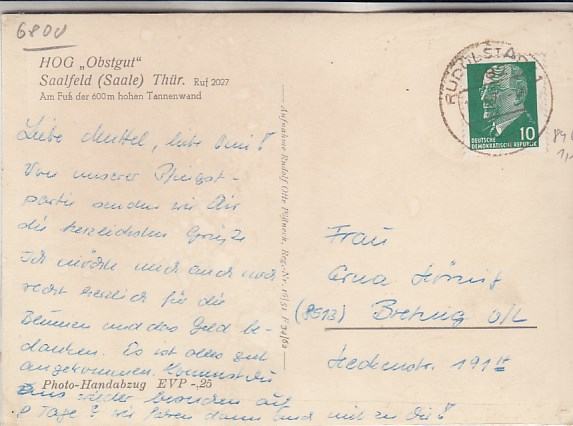 6800
HOG „Obstgut“
Saalfeld (Saale) Thür. Ruf 2027
Am Fuß der 600 m hohen Tannenwand
Liebe Muttel, liebe
Von unserer Pfingst-
partie senden wir Dir
die herzlichsten Grüße
Ich möchte mich auch noch
recht herzlich für die
Blumen und das Geld be-
danken. Es ist alles gut
angekommen. Kommst Du
uns wieder besuchen auf
8 Tage? wir fahren dann und mit zu Dir!
Photo-Handabzug EVP -,25
Aufnahme Rudolf Otto Pößneck, Reg.-Nr.
RUDOLSTADT 1
10
DEUTSCHE
DEMOKRATISCHE REPUBLIK
Frau
Erna
(8513) Bretnig o/L
191